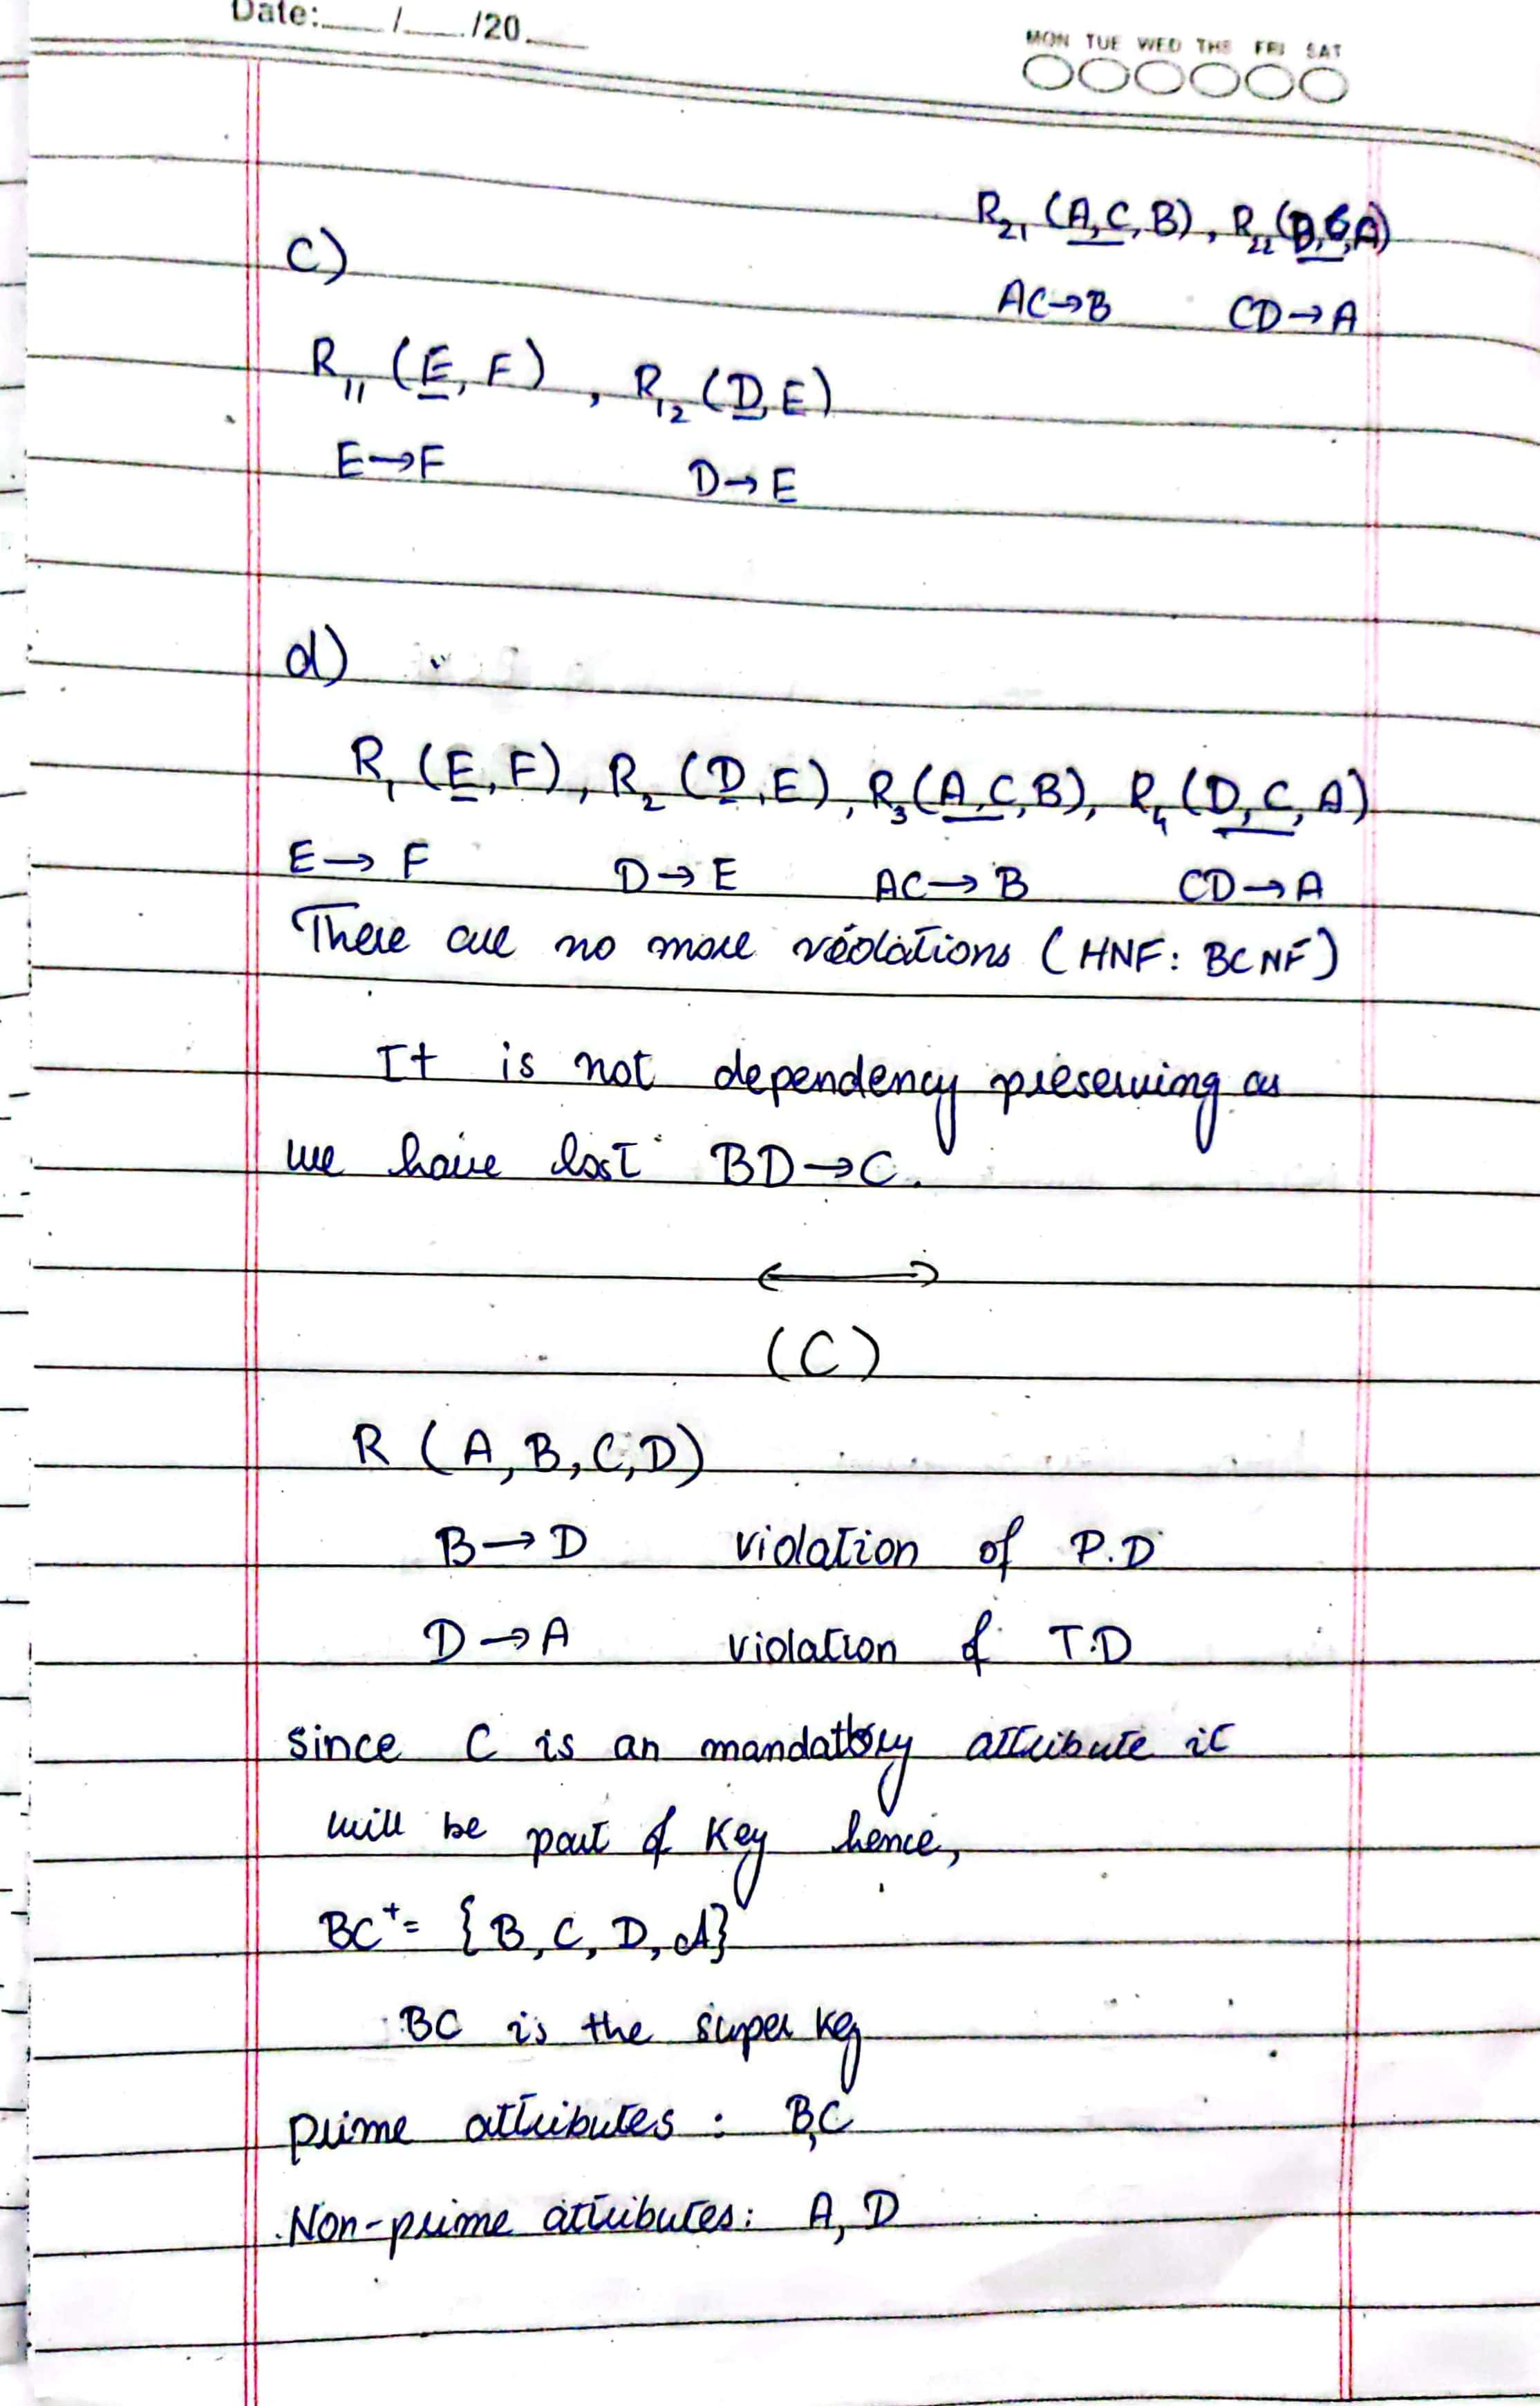 Date:___/___/20___
MON TUE WED THE FRI SAT
R₂₁ (A,C,B), R₂₂(D,C,A)
c)
AC→B CD→A
R₁₁ (E,F), R₁₂ (D,E)
E→F D→E
d)
R₁ (E,F), R₂ (D,E), R₃(A,C,B), R₄ (D,C,A)
E→F D→E AC→B CD→A
There are no more violations (HNF: BCNF)
It is not dependency preserving as
we have lost BD→C.
(C)
R (A,B,C,D)
B→D violation of P.D
D→A violation of T.D
since C is an mandatory attribute it
will be part of Key hence,
BC⁺= {B,C,D,A}
BC is the super key
prime attributes : B,C
Non-prime attributes: A, D